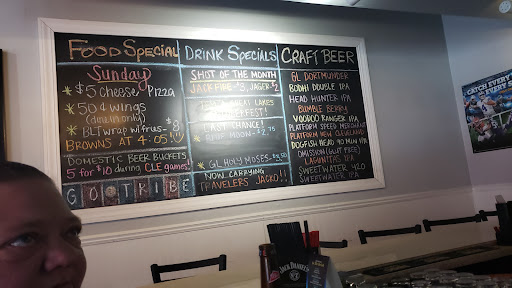 FOOD SPECIAL
Sunday
* $5 CHEESE PIZZA
* 50¢ WINGS
(dine in only)
* BLT wrap w/ FRIES - $8
BROWNS AT 4:05!!
DOMESTIC BEER BUCKETS
5 FOR $10 DURING CLE GAMES!
GO TRIBE
DRINK SPECIALS
SHOT OF THE MONTH
LAST CHANCE!
* GL HOLY MOSES - $3.50
NOW CARRYING
TRAVELERS JACKO!!
CRAFT BEER
GL DORTMUNDER
BODHI DOUBLE IPA
HEAD HUNTER IPA
BUMBLE BERRY
VOODOO RANGER IPA
PLATFORM SPEED MERCHANT
PLATFORM NEW CLEVELAND
DOGFISH HEAD 90 MIN IPA
OMISSION (GLUT. FREE)
LAGUNITAS IPA
SWEETWATER 420
SWEETWATER IPA
CATCH EVERY
EVERY
JACK DANIEL'S